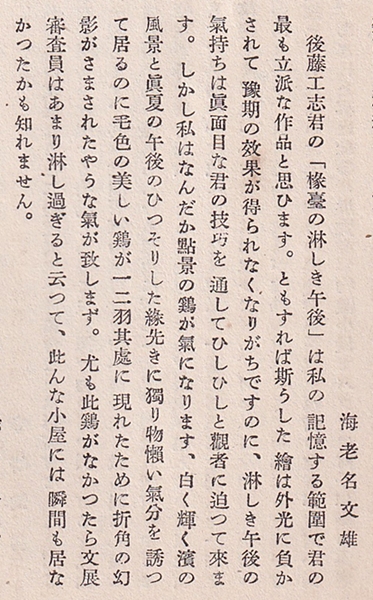 海老名文雄
後藤工志君の「椽臺の淋しき午後」は私の記憶する範圍で君の
最も立派な作品と思ひます。ともすれば斯うした繪は外光に負か
されて豫期の效果が得られなくなりがちですのに、淋しき午後の
氣持ちは眞面目な君の技巧を通してひしひしと觀者に迫つて來ま
す。しかし私はなんだか點景の鷄が氣になります、白く輝く濱の
風景と眞夏の午後のひつそりした緣先きに獨り物懶い氣分を誘つ
て居るのに毛色の美しい鷄が一二羽其處に現れたために折角の幻
影がさまされたやうな氣が致しまず。尤も此鷄がなかつたら文展
審査員はあまり淋し過ぎると云つて、此んな小屋には瞬間も居な
かつたかも知れません。